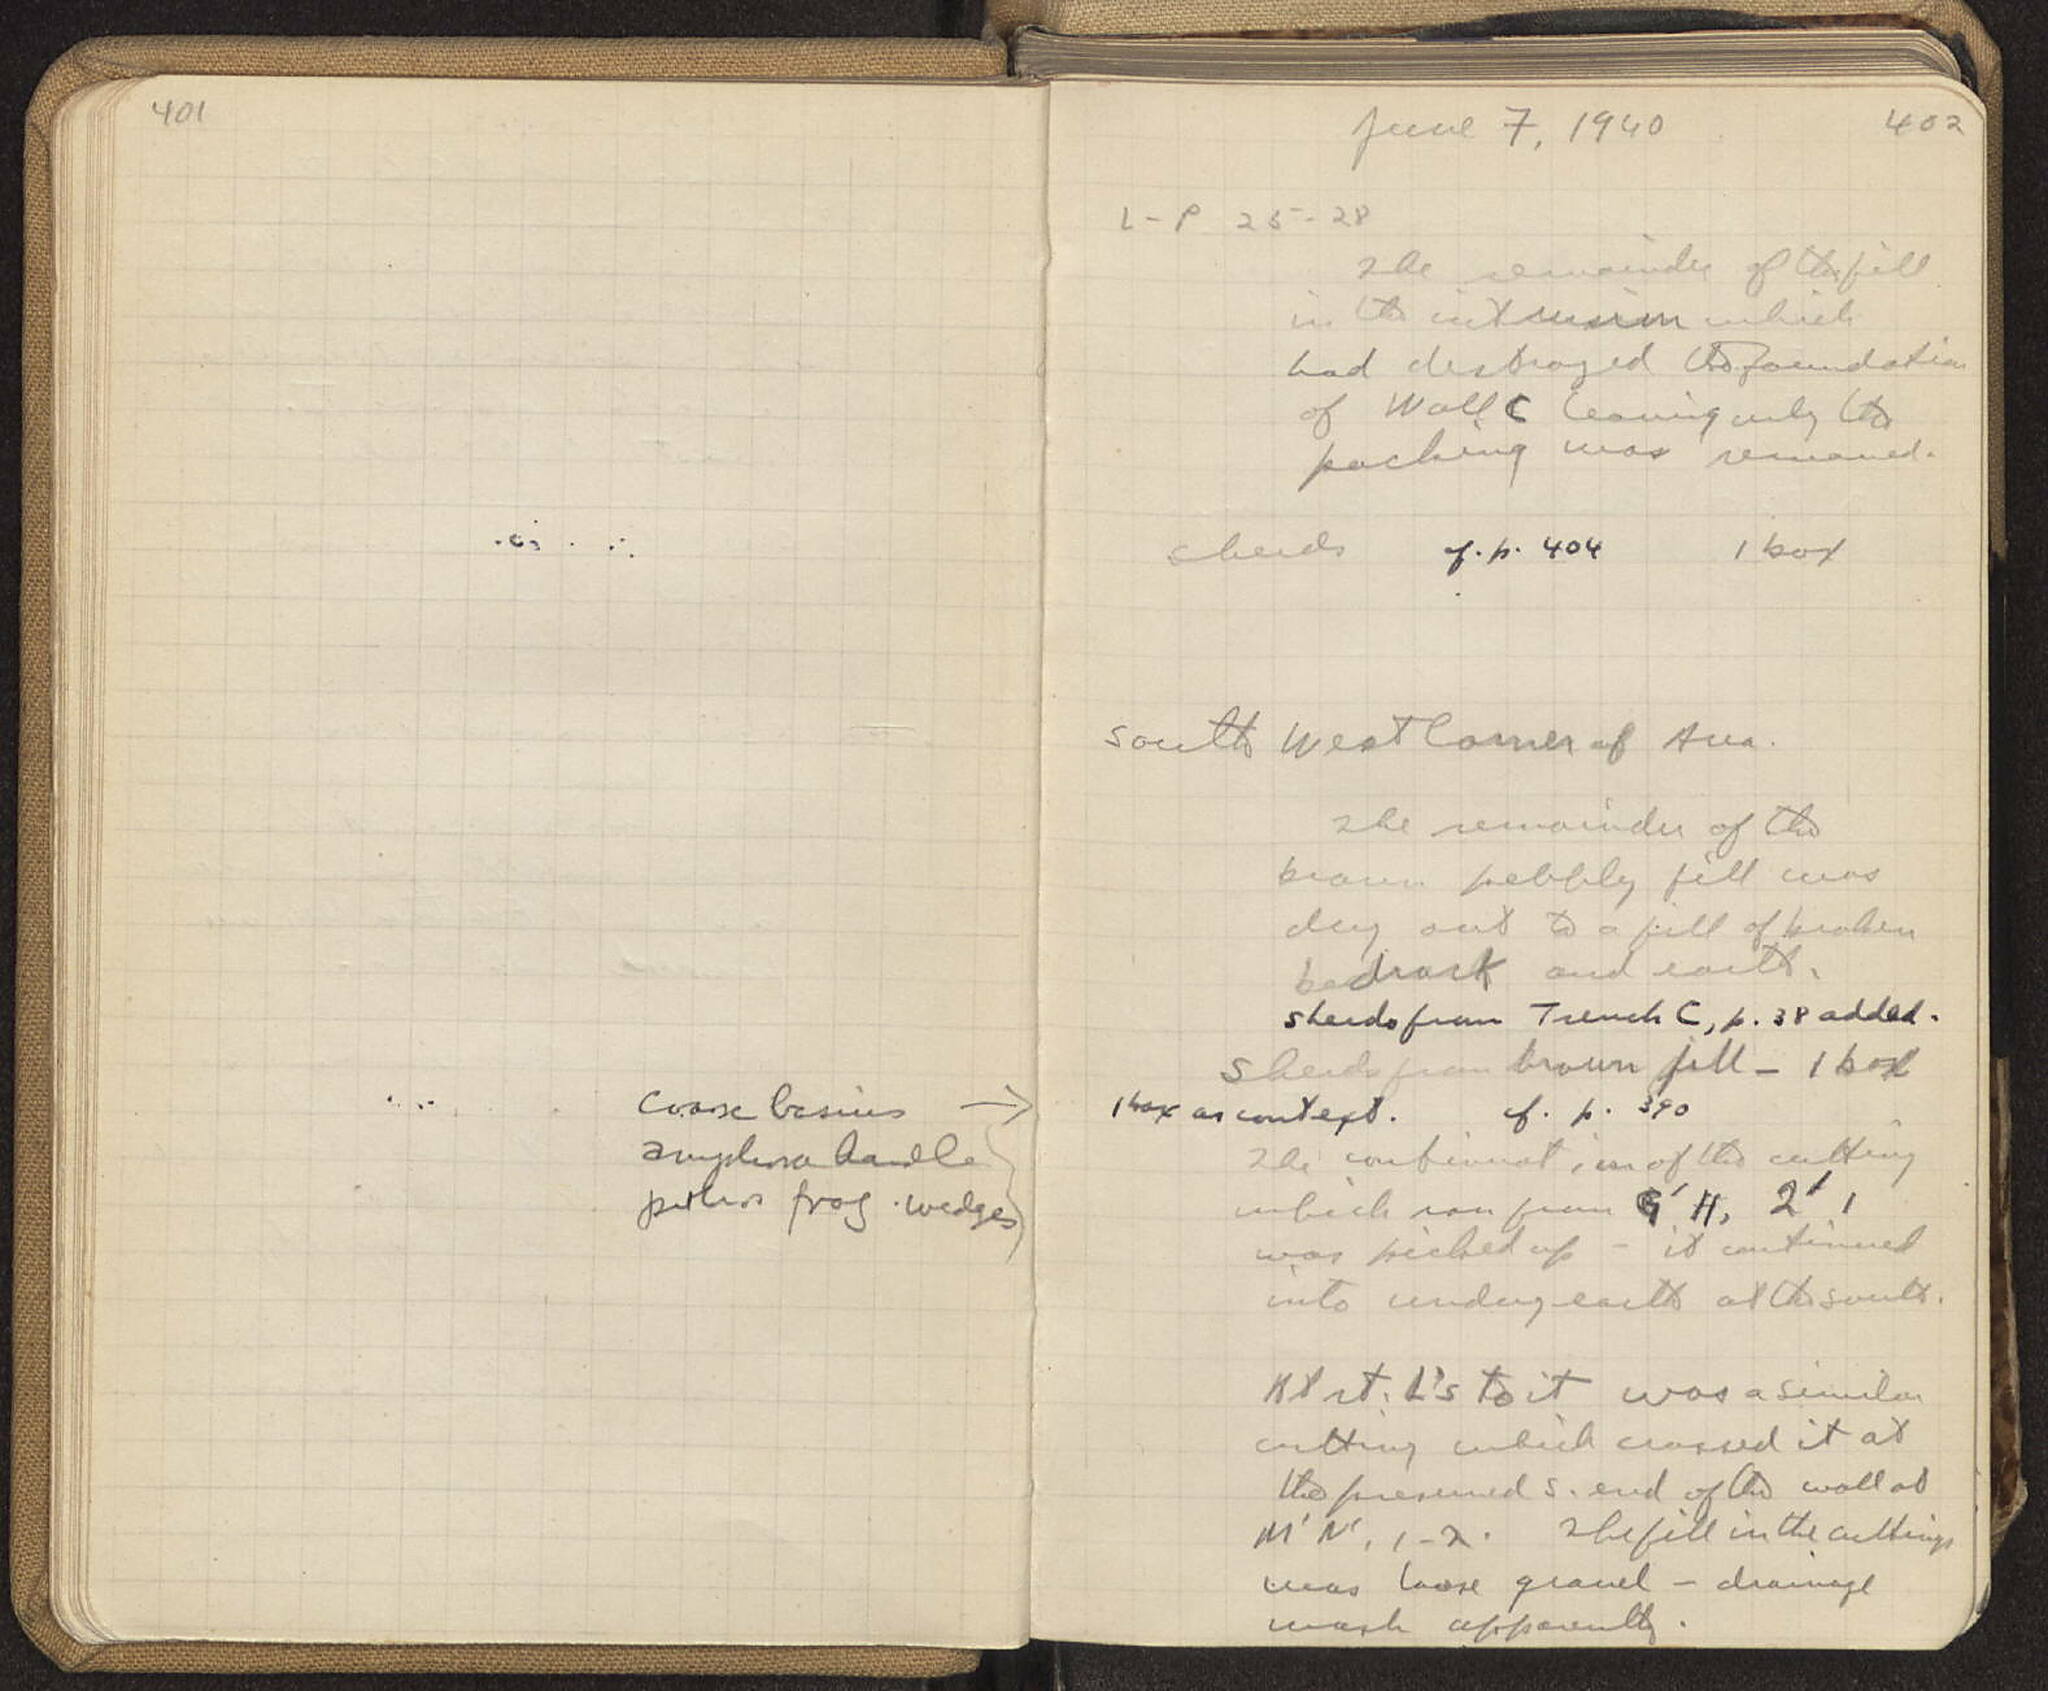 401
coarse basins →
amphora handle
pithos frag · wedges
June 7, 1940
402
L-P 25-28
The remainder of the fill
in the intrusion which
had destroyed the foundation
of Wall C leaving only the
packing was removed.
sherds cf. p. 404 1 box
South West Corner of Area.
The remainder of the
brown pebbly fill was
dug out to a fill of broken
bedrock and earth.
sherds from Trench C, p. 38 added.
Sherds from brown fill - 1 box
1 box as context. cf. p. 390
The continuation of the cutting
which ran from G' H, 2' 1
was picked up - it continued
into undug earth at the south.
At rt. L's to it was a similar
cutting which crossed it at
the presumed S. end of the wall at
M' N', 1-2. The fill in the cuttings
was loose gravel - drainage
wash apparently.